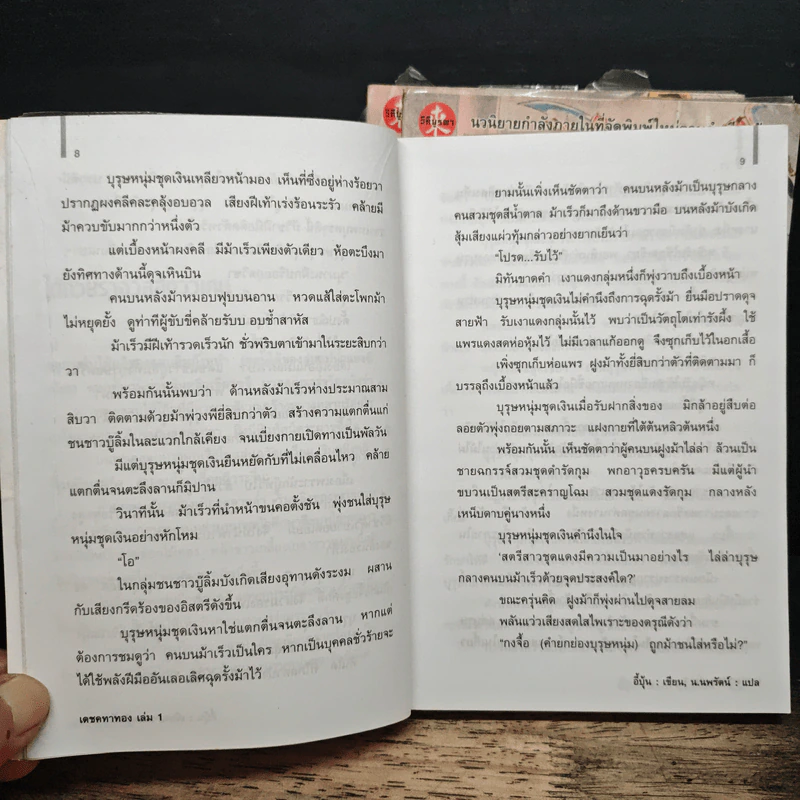 วิถีบูรพา
วิถีบูรพา
นวนิยายกำลังภายในที่จัดพิมพ์ใหม่
8
บุรุษหนุ่มชุดเงินเหลียวหน้ามอง เห็นที่ซึ่งอยู่ห่างร้อยวา
ปรากฏผงคลีคละคลุ้งอบอวล เสียงฝีเท้าเร่งร้อนระรัว คล้ายมี
ม้าควบขับมากกว่าหนึ่งตัว
แต่เบื้องหน้าผงคลี มีม้าเร็วเพียงตัวเดียว ห้อตะบึงมา
ยังทิศทางด้านนี้ดุจเหินบิน
คนบนหลังม้าหมอบฟุบบนอาน หวดแส้ใส่ตะโพกม้า
ไม่หยุดยั้ง ดูท่าทีผู้ขับขี่คล้ายรับบ อบช้ำสาหัส
ม้าเร็วมีฝีเท้ารวดเร็วนัก ชั่วพริบตาเข้ามาในระยะสิบกว่า
วา
พร้อมกันนั้นพบว่า ด้านหลังม้าเร็วห่างประมาณสาม
สิบวา ติดตามด้วยม้าพ่วงพียี่สิบกว่าตัว สร้างความแตกตื่นแก่
ชนชาวบู๊ลิ้มในละแวกใกล้เคียง จนเบี่ยงกายเปิดทางเป็นพัลวัน
มีแต่บุรุษหนุ่มชุดเงินยืนหยัดกับที่ไม่เคลื่อนไหว คล้าย
แตกตื่นจนตะลึงลานก็มิปาน
วินาทีนั้น ม้าเร็วที่นำหน้าขนคอตั้งชัน พุ่งชนใส่บุรุษ
หนุ่มชุดเงินอย่างหักโหม
“โอ”
ในกลุ่มชนชาวบู๊ลิ้มบังเกิดเสียงอุทานดังระงม ผสาน
กับเสียงกรีดร้องของอิสตรีดังขึ้น
บุรุษหนุ่มชุดเงินหาใช่แตกตื่นจนตะลึงลาน หากแต่
ต้องการชมดูว่า คนบนม้าเร็วเป็นใคร หากเป็นบุคคลชั่วร้ายจะ
ได้ใช้พลังฝีมืออันเลอเลิศฉุดรั้งม้าไว้
เดชคทาทอง เล่ม 1
9
ยามนั้นเพิ่งเห็นชัดตาว่า คนบนหลังม้าเป็นบุรุษกลาง
คนสวมชุดสีน้ำตาล ม้าเร็วก็มาถึงด้านขวามือ บนหลังม้าบังเกิด
สุ้มเสียงแผ่วทุ้มกล่าวอย่างยากเย็นว่า
“โปรด...รับไว้”
มิทันขาดคำ เงาแดงกลุ่มหนึ่งก็พุ่งวาบถึงเบื้องหน้า
บุรุษหนุ่มชุดเงินไม่คำนึงถึงการฉุดรั้งม้า ยื่นมือปราดดุจ
สายฟ้า รับเงาแดงกลุ่มนั้นไว้ พบว่าเป็นวัตถุโตเท่ารังผึ้ง ใช้
แพรแดงสดห่อหุ้มไว้ ไม่มีเวลาแก้ออกดู จึงซุกเก็บไว้ในอกเสื้อ
เพิ่งซุกเก็บห่อแพร ฝูงม้าทั้งยี่สิบกว่าตัวที่ติดตามมา ก็
บรรลุถึงเบื้องหน้าแล้ว
บุรุษหนุ่มชุดเงินเมื่อรับฝากสิ่งของ มิกล้าอยู่สืบต่อ
ลอยตัวพุ่งถอยตามสภาวะ แฝงกายที่ใต้ต้นหลิวต้นหนึ่ง
พร้อมกันนั้น เห็นชัดตาว่าผู้คนบนฝูงม้าไล่ล่า ล้วนเป็น
ชายฉกรรจ์สวมชุดดำรัดกุม พกอาวุธครบครัน มีแต่ผู้นำ
ขบวนเป็นสตรีสะคราญโฉม สวมชุดแดงรัดกุม กลางหลัง
เหน็บดาบคู่นางหนึ่ง
บุรุษหนุ่มชุดเงินคำนึงในใจ
‘สตรีสาวชุดแดงมีความเป็นมาอย่างไร ไล่ล่าบุรุษ
กลางคนบนม้าเร็วด้วยจุดประสงค์ใด?’
ขณะครุ่นคิด ฝูงม้าก็พุ่งผ่านไปดุจสายลม
พลันแว่วเสียงสดใสไพเราะของดรุณีดังว่า
“กงจื้อ (คำยกย่องบุรุษหนุ่ม) ถูกม้าชนใส่หรือไม่?”
อี้บุ้น : เขียน, น.นพรัตน์ : แปล